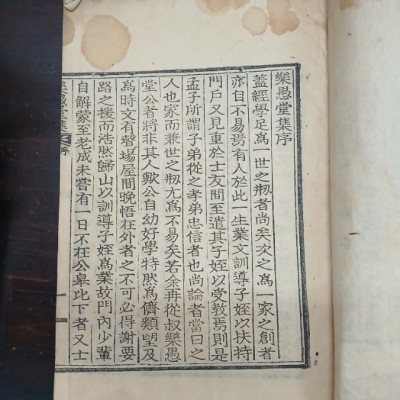 樂愚堂集序
蓋經學足爲一世之刱者尚矣次之爲一家之創者
亦自不易焉有人於此一生業文訓導子姪以扶持
門戶又見重於士友間至遣其子姪以受教焉則是
孟子所謂子弟從之孝弟忠信者也尚論者當曰之
人也家而兼世之刱尤爲不易矣若余再從叔樂愚
堂公者將非其人歟公自幼好學特然爲儕類望及
爲時文有譽場屋間晩悟在外者之不可必得謝要
路之援而浩然歸山以訓導子姪爲業故門內少輩
自解蒙至老成未嘗有一日不在公皐比下者又士
樂愚堂集 序 一